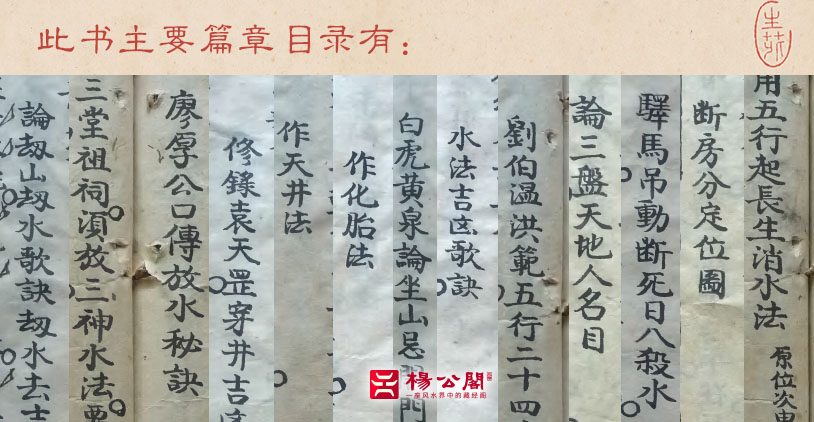 此书主要篇章目录有：
用五行起長生消水法 原位次
断房分定位圖
驛馬吊動断死日八殺水
論三盤天地人名目
劉伯温洪範五行二十四
水法吉凶歌訣
白虎黄泉論坐山忌
作化胎法
作天井法
修錄袁天罡穿井吉凶
廖厚公口傳放水秘訣
三堂祖祠湏放三神水法要
論刼山刼水歌訣刼水去
楊公閣
一座风水界中的藏经阁